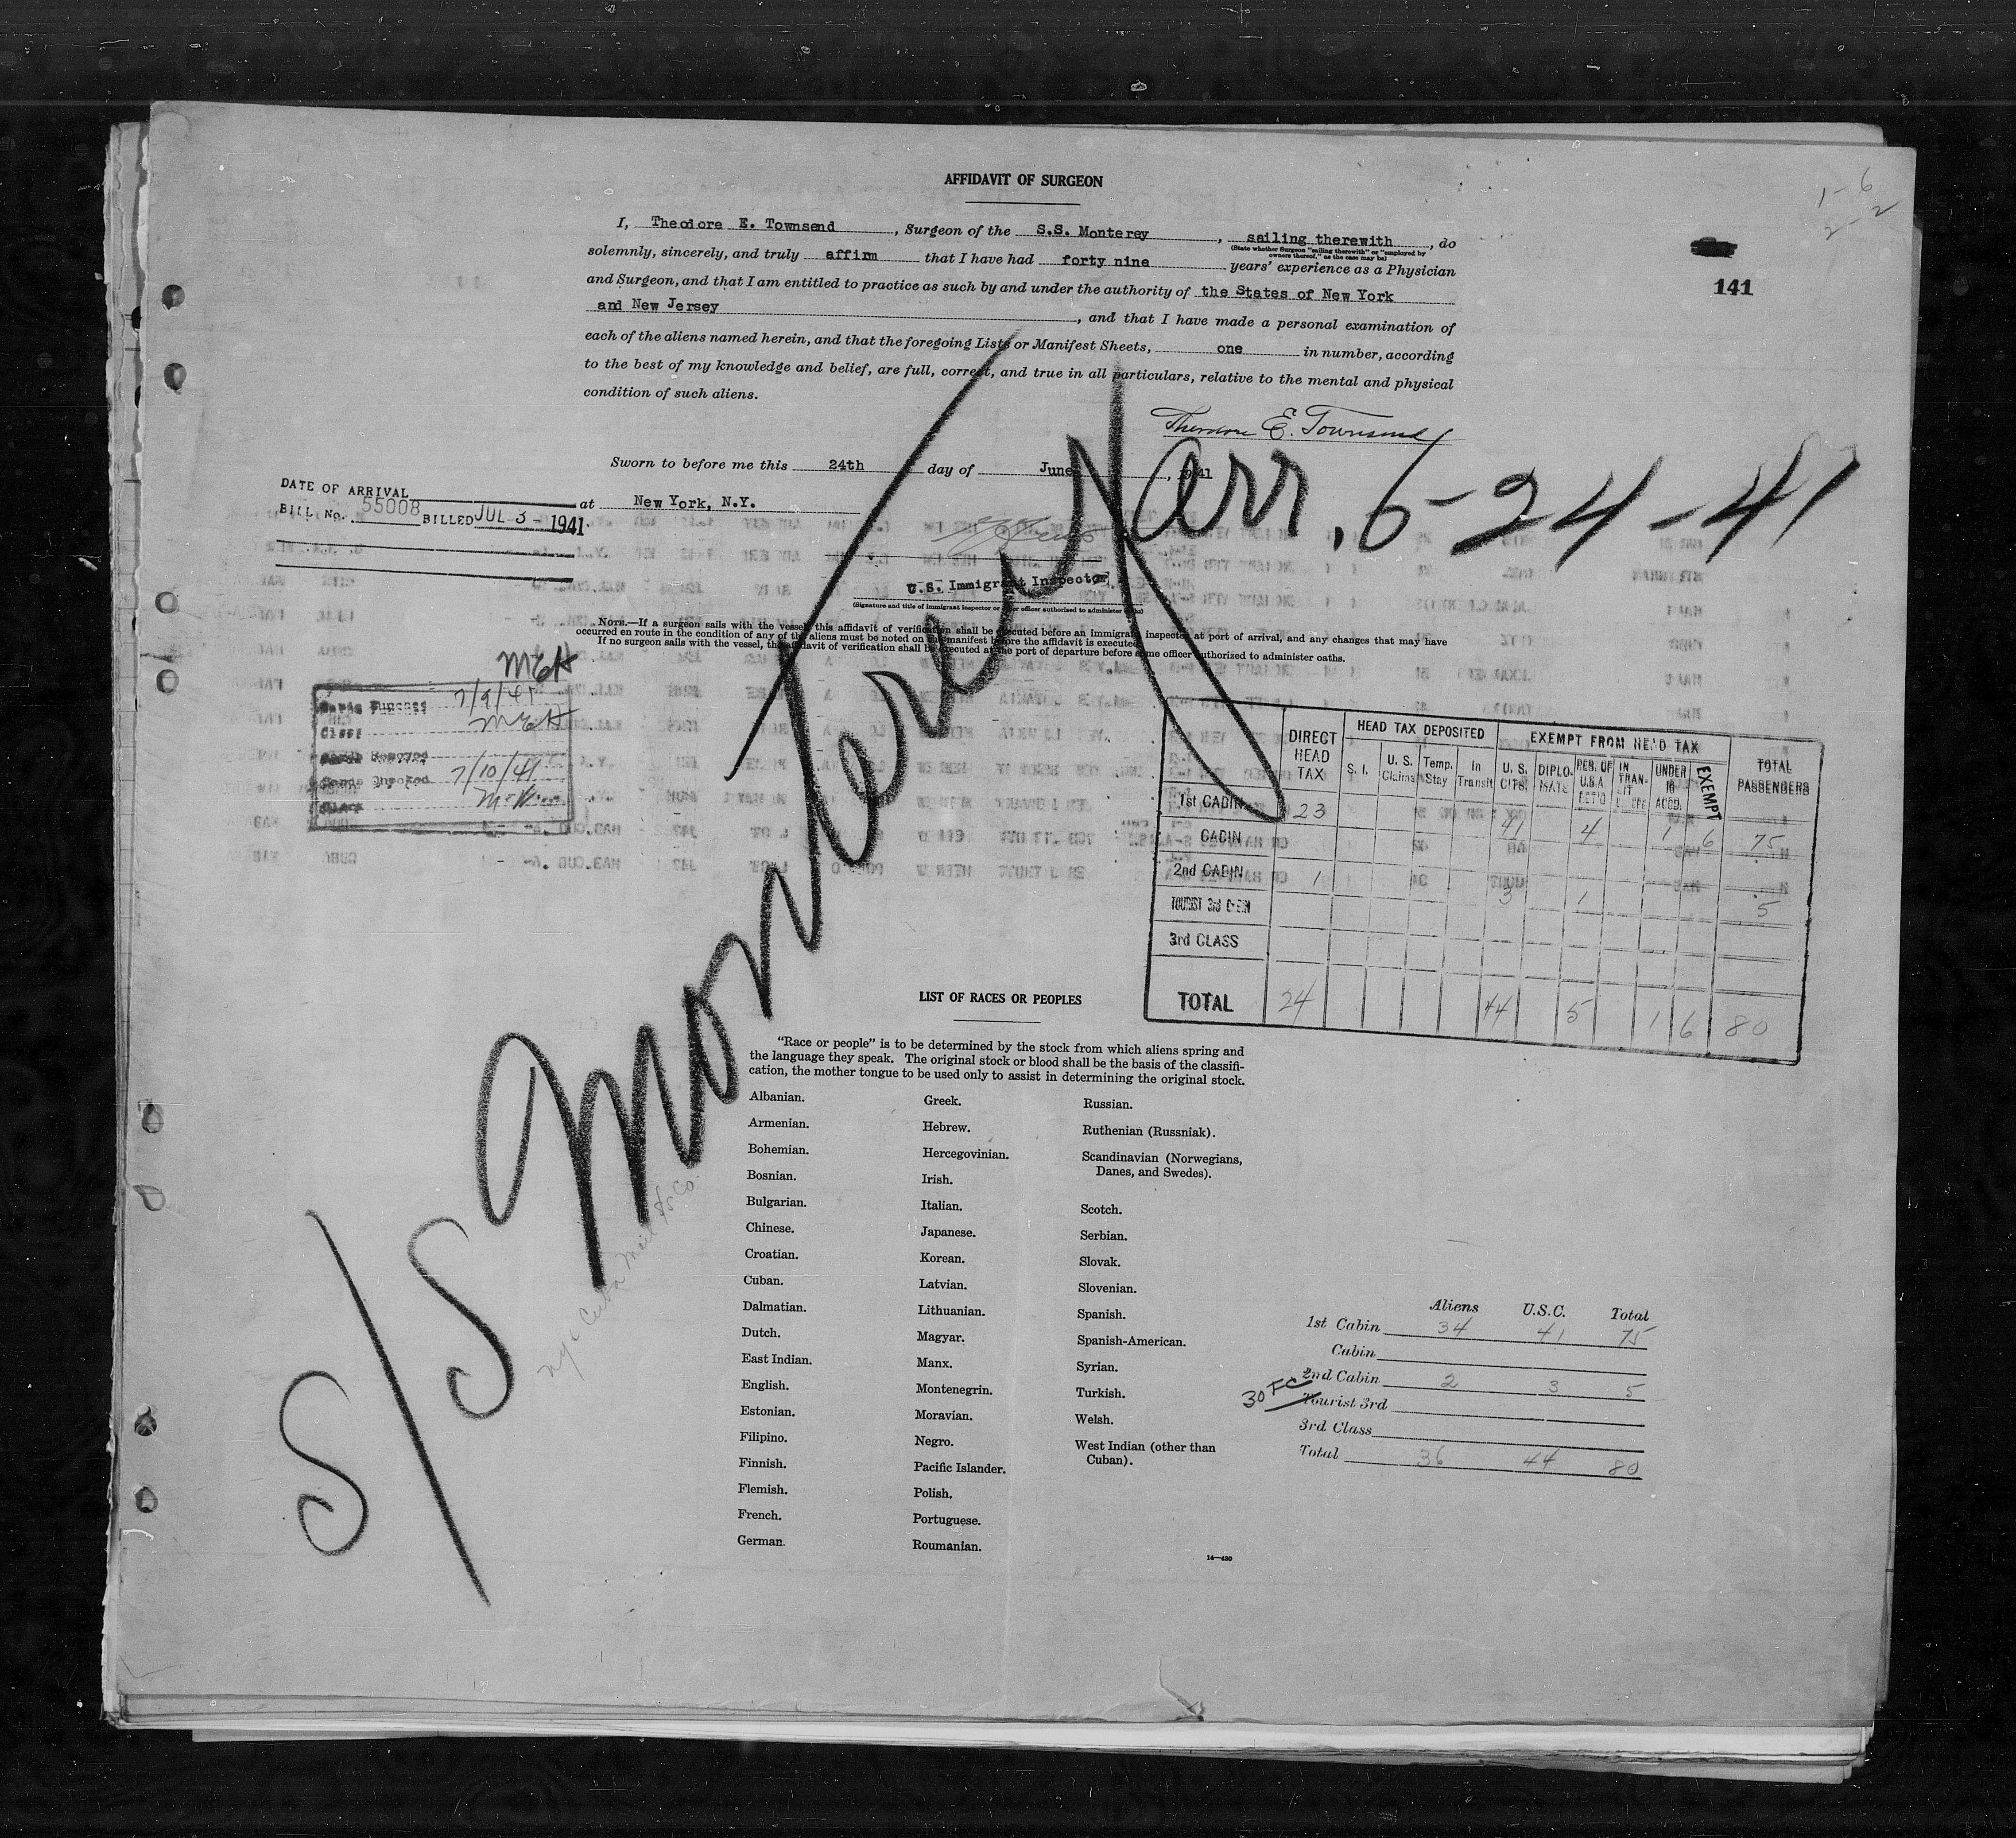 AFFIDAVIT OF SURGEON
1-6
2-2
141
I, Theodore E. Townsend, Surgeon of the S.S. Monterey, sailing therewith, do
(State whether Surgeon "sailing therewith" or "employed by
owners thereof," as the case may be)
solemnly, sincerely, and truly affirm that I have had forty nine years' experience as a Physician
and Surgeon, and that I am entitled to practice as such by and under the authority of the States of New York
and New Jersey, and that I have made a personal examination of
each of the aliens named herein, and that the foregoing Lists or Manifest Sheets, one in number, according
to the best of my knowledge and belief, are full, correct, and true in all particulars, relative to the mental and physical
condition of such aliens.
Theodore E. Townsend
Sworn to before me this 24th day of June, 1941
at New York, N.Y.
DATE OF ARRIVAL
BILL No. 55008 BILLED JUL 3 - 1941
U.S. Immigrant Inspector
(Signature and title of immigrant inspector or other officer authorized to administer oaths)
NOTE.—If a surgeon sails with the vessel, this affidavit of verification shall be executed before an immigrant inspector at port of arrival, and any changes that may have
occurred en route in the condition of any of the aliens must be noted on the manifest before the affidavit is executed.
If no surgeon sails with the vessel, the affidavit of verification shall be executed at the port of departure before some officer authorized to administer oaths.
S/S Monterey
arr. 6-24-41
7/9/41
7/10/41
DIRECT HEAD TAX
HEAD TAX DEPOSITED
EXEMPT FROM HEAD TAX
TOTAL PASSENGERS
S. I. U. S. Claims Temp. Stay In Transit U. S. CITS. DIPLO-MATS RES. OF U.S.A RET'D IN TRAN-SIT UNDER 16 ACCD. EXEMPT
1st CABIN 23 41 4 1 6 75
CABIN
2nd CABIN 1 3 1 5
TOURIST 3rd CABIN
3rd CLASS
TOTAL 24 44 5 1 6 80
LIST OF RACES OR PEOPLES
"Race or people" is to be determined by the stock from which aliens spring and
the language they speak. The original stock or blood shall be the basis of the classifi-
cation, the mother tongue to be used only to assist in determining the original stock.
Albanian.
Armenian.
Bohemian.
Bosnian.
Bulgarian.
Chinese.
Croatian.
Cuban.
Dalmatian.
Dutch.
East Indian.
English.
Estonian.
Filipino.
Finnish.
Flemish.
French.
German.
Greek.
Hebrew.
Hercegovinian.
Irish.
Italian.
Japanese.
Korean.
Latvian.
Lithuanian.
Magyar.
Manx.
Montenegrin.
Moravian.
Negro.
Pacific Islander.
Polish.
Portuguese.
Roumanian.
Russian.
Ruthenian (Russniak).
Scandinavian (Norwegians,
Danes, and Swedes).
Scotch.
Serbian.
Slovak.
Slovenian.
Spanish.
Spanish-American.
Syrian.
Turkish.
Welsh.
West Indian (other than
Cuban).
14—430
Aliens U.S.C. Total
1st Cabin 34 41 75
Cabin
2nd Cabin 2 3 5
30 FC
Tourist 3rd
3rd Class
Total 36 44 80